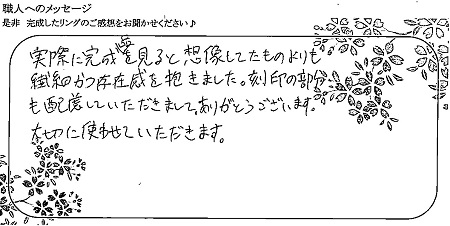 職人へのメッセージ
是非 完成したリングのご感想をお聞かせください♪
実際に完成品を見ると想像してたものよりも
繊細かつ存在感を抱きました。刻印の部分
も配慮していただきまして、ありがとうございます。
大切に使わせていただきます。